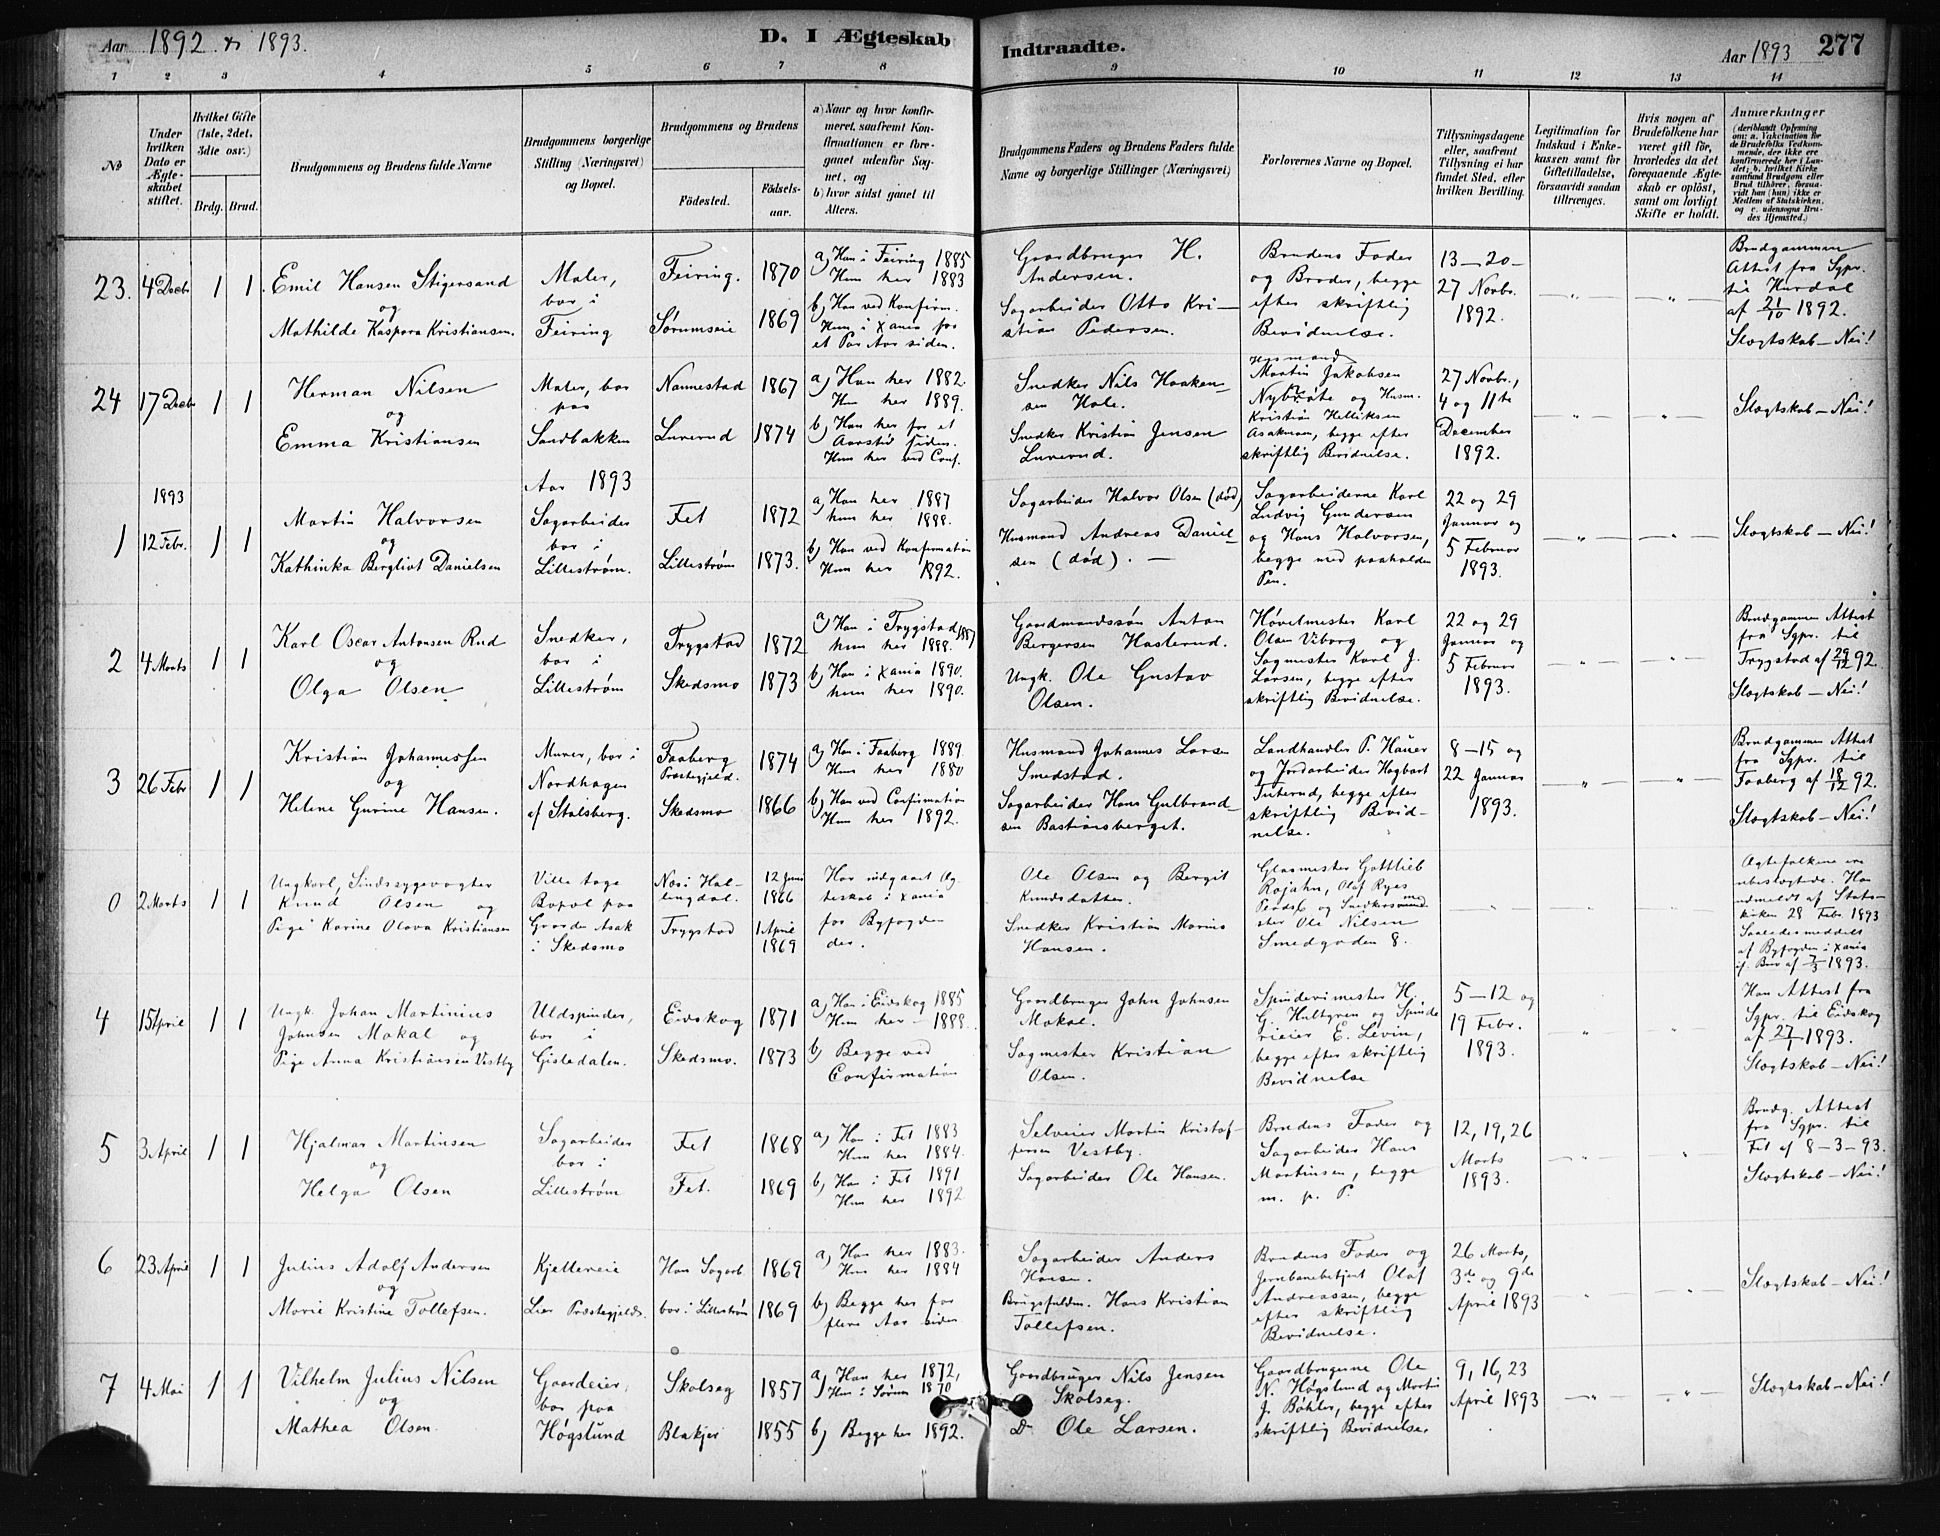 Aar 1892 & 1893.
D. I Ægteskab
Indtraadte.
Aar 1893
277
1 2 3 4 5 6 7 8 9 10 11 12 13 14
No
Under hvilken Dato er Ægteskabet stiftet.
Hvilket Gifte (1ste, 2det, 3die osv.)
Brdg. Brud.
Brudgommens og Brudens fulde Navne
Brudgommens borgerlige Stilling (Næringsvei) og Bopæl.
Brudgommens og Brudens
Fødested.
Fødselsaar.
a) Naar og hvor konfirmeret, saafremt Konfirmationen er foregaaet udenfor Sognet, og
b) hvor sidst gaaet til Alters.
Brudgommens Faders og Brudens Faders fulde Navne og borgerlige Stillinger (Næringsvei)
Forlovernes Navne og Bopæl.
Tillysningsdagene eller, saafremt Tillysning ei har fundet Sted, efter hvilken Bevilling.
Legitimation for Indskud i Enkekassen samt for Giftetilladelse, forsaavidt saadan tiltrænges.
Hvis nogen af Brudefolkene har været gift før, hvorledes da det foregaaende Ægteskab er opløst, samt om lovligt Skifte er holdt.
Anmærkninger
(deriblandt Oplysning om: a. Vakcination for de Brudefolks Vedkommende, der ikke ere konfirmerede her i Landet; b. hvilket Kirkesamfund Brudgom eller Brud tilhører, forsaavidt han (hun) ikke er Medlem af Statskirken, og c. udensogns Brudes Hjemsted.)
23. 4 Decbr. 1 1.
Emil Hansen Stigersand
og
Mathilde Kaspara Kristiansen.
Maler,
bor i
Feiring
Feiring. 1870
Sørumseie 1869
a) Han i Feiring 1885
Hun her 1883
b) Han ved Konfirm.
Hun i Xania for
et Par Aar siden.
Gaardbruger H.
Andersen.
Sagarbeider Otto Kri-
stian Pedersen.
Brudens Fader
og Broder, begge
efter skriftlig
Bevidnelse.
13–20–
27 Novbr.
1892.
Brudgommen
Attest fra Sgpr.
til Hurdal
af 21/10 1892.
Slægtskab – Nei!
24 17 Decbr 1 1
Herman Nilsen
og
Emma Kristiansen
Maler, bor
paa
Sandbakken
Nannestad 1867
Lurerud 1874
a) Han her 1882.
Hun her 1889.
b) Han her for et
Aarstid siden.
Hun her ved Conf.
Snedker Nils Haaken-
sen Hole.
Snedker Kristian Jensen
Lurerud.
Husmand
Martin Jakobsen
Nybraate og Husm.
Kristian Helliksen
Asakmoen, begge efter
skriftlig Bevidnelse.
27 Novbr.,
4 og 11te
December
1892.
Slægtskab – Nei!
Aar 1893
1893
1 12 Febr. 1 1
Martin Halvorsen
og
Kathinka Bergliot Danielsen
Sagarbeider
bor i
Lillestrøm.
Fet 1872
Lillestrøm 1873.
a) Han her 1887
hun her 1888.
b) Han ved Konfirmation
Hun her 1892.
Sagarbeider Halvor Olsen (død)
Husmand Andreas Daniel-
sen (død). –
Sagarbeiderne Karl
Ludvig Gundersen
og Hans Halvorsen,
begge med paaholden
Pen.
22 og 29
Januar og
5 Februar
1893.
Slægtskab – Nei!
2 4 Marts 1 1
Karl Oscar Antonsen Rud
og
Olga Olsen
Snedker,
bor i
Lillestrøm
Trygstad 1872
Skedsmo 1873
a) Han i Trygstad 1887
hun her 1888.
b) Han i Xania 1890.
hun her 1890.
Gaardmandssøn Anton
Bergersen Haslerud.
Ungk. Ole Gustav
Olsen.
Høvelmester Karl
Olsen Viborg og
Sagmester Karl J.
Larsen, begge efter
skriftlig Bevidnelse.
22 og 29
Januar og
5 Februar
1893.
Brudgommen Attest
fra Sgpr. til
Trygstad af 29/12 92.
Slægtskab – Nei!
3 26 Febr 1 1
Kristian Johannessen
og
Helene Gurine Hansen.
Murer, bor i
Nordhagen
af Stalsberg.
Faaberg
Præstegjeld. 1874
Skedsmo 1866
a) Han i Faaberg 1889.
Hun her 1880
b) Han ved Confirmation
Hun her 1892.
Husmand Johannes Larsen
Smedstad.
Sagarbeider Hans Gulbrand-
sen Bastiansberget.
Landhandler P. Hauer
og Jordarbeider Hagbart
Tuterud, begge efter
skriftlig Bevid-
nelse.
8–15 og
22 Januar
1893.
Brudgommen Attest
fra Sgpr. til
Faaberg af 18/12 92.
Slægtskab – Nei!
0 2 Marts 1 1
Ungkarl, Sindssygevogter
Knud Olsen og
Pige Karine Olava Kristiansen
Ville tage
Bopæl paa
Gaarden Asak
i Skedsmo
Næs i Hal-
lingdal. 12 Juni
1866
Trygstad 1 April
1869
Har indgaaet Æg-
teskab i Xania
for Byfogden
der.
Ole Olsen og Bergit
Knudsdatter.
Snedker Kristian Marius
Hansen.
Glasmester Gottlieb
Rojahn, Olaf Ryes
Plads 6 og Snedkersvend
Ole Nilsen
Smedgaden 8.
Ægtefolkene ere
ubeslægtede. Han
udmeldt af Stats-
kirken 28 Febr. 1893
Saaledes meddelt
af Byfogden i Xania
if. Brev af 7/3 1893.
4 15 April 1 1
Ungk. Johan Martinius
Johnsen Makal og
Pige Anna Kristiansen Vestby
Uldspinder,
bor i
Gisledalen.
Eidskog 1871
Skedsmo. 1873
a) Han i Eidskog 1885
Hun her – 1888.
b) Begge ved
Confirmation
Gaardbruger John Johnsen
Makal.
Sagmester Kristian
Olsen.
Spinderimester H.
G. Hultgren og Spinde
rieier E. Levin,
begge efter skriftlig
Bevidnelse
5–12 og
19 Febr.
1893.
Han Attest fra
Sgpr. til Eidskog
af 27/1 1893.
Slægtskab – Nei!
5 3 April 1 1
Hjalmar Martinsen
og
Helga Olsen
Sagarbeider
bor i
Lillestrøm
Fet 1868
Fet. 1869
a) Han i Fet 1883
Hun her 1884.
b) Han i Fet 1891
Hun her 1892
Selveier Martin Kristof-
fersen Vestby.
Sagarbeider Ole Hansen.
Brudens Fader og
Sagarbeider Hans
Martinsen, begge
m. p. P.
12, 19, 26
Marts
1893.
Brudg. Attest
fra Sgpr. til
Fet af 8–3–93.
Slægtskab – Nei!
6 23 April 1 1
Julius Adolf Andersen
og
Marie Kristine Tollefsen.
Kjellereie
Lier Præstegjeld.
Han Sagarb. 1869
bor i Lillestrøm 1869
a) Han her 1883.
Hun her 1884
b) Begge her for
flere Aar siden
Sagarbeider Anders
Hansen.
Brugsfuldm. Hans Kristian
Tollefsen.
Brudens Fader og
Jernbanebetjent Olaf
Andreassen, begge
efter skriftlig
Bevidnelse.
26 Marts,
3de og 9de
April 1893
Slægtskab – Nei!
7 4 Mai 1 1
Vilhelm Julius Nilsen
og
Mathea Olsen.
Gaardeier,
bor paa
Høgslund
Skolseg 1857
Blakjer 1855
a) Han her 1872,
Hun i Sørum 1870
b) Begge her 1892.
Gaardbruger Nils Jensen
Skolseg.
Do Ole Larsen.
Gaardbrugerne Ole
N. Høgslund og Martin
J. Bøhler, begge efter
skriftlig Bevidnelse.
9, 16, 23
April 1893
Slægtskab – Nei!